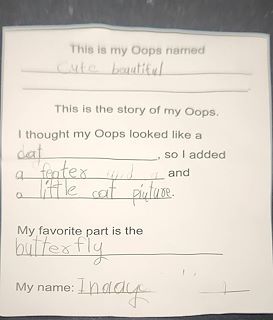 This is my Oops named
Cute beautiful
This is the story of my Oops.
I thought my Oops looked like a
cat, so I added
a feater and a and
a little cat picture.
My favorite part is the
butterfly
My name: